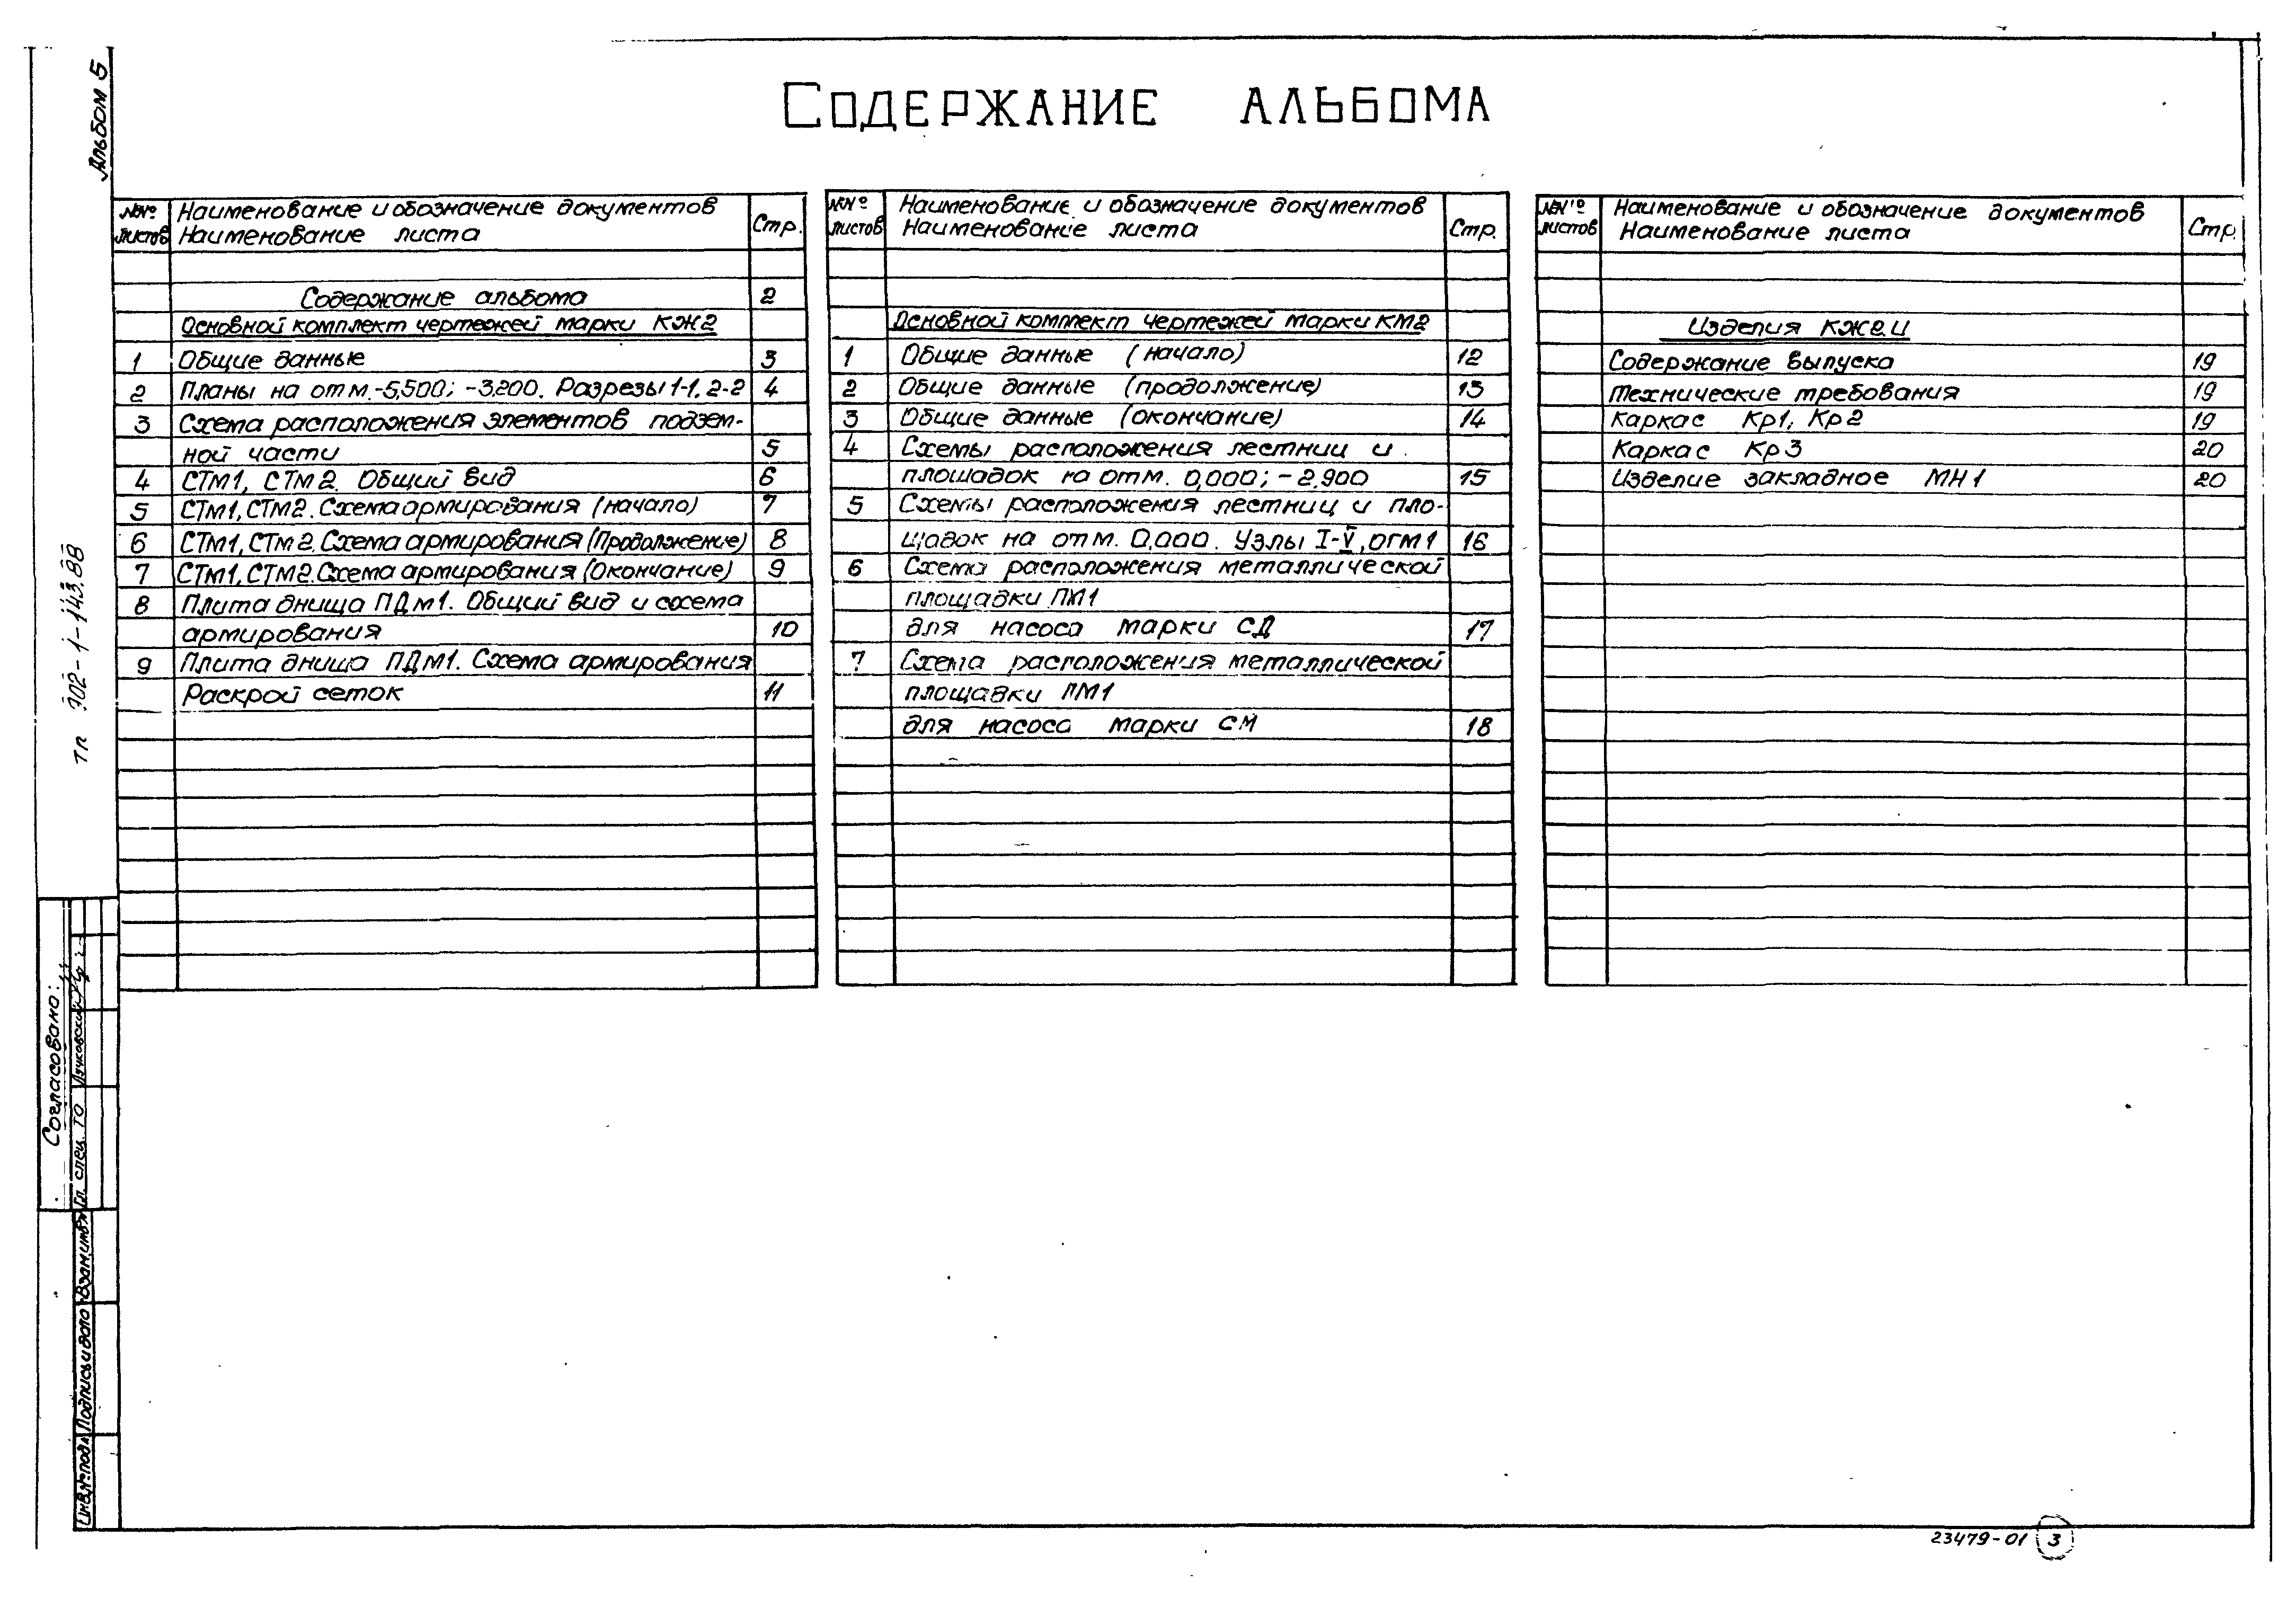 Альбом 5
Содержание альбома
№№ листов
Наименование и обозначение документов
Наименование листа
Стр.
Содержание альбома 2
Основной комплект чертежей марки КЖ2
1 Общие данные 3
2 Планы на отм.-5,500; -3,200. Разрезы 1-1, 2-2 4
3 Схема расположения элементов подзем-
ной части 5
4 СТм1, СТм2. Общий вид 6
5 СТм1, СТм2. Схема армирования (начало) 7
6 СТм1, СТм2. Схема армирования (Продолжение) 8
7 СТм1, СТм2. Схема армирования (Окончание) 9
8 Плита днища ПДм1. Общий вид и схема
армирования 10
9 Плита днища ПДм1. Схема армирования
Раскрой сеток 11
№№ листов
Наименование и обозначение документов
Наименование листа
Стр.
Основной комплект чертежей марки КМ2
1 Общие данные (начало) 12
2 Общие данные (продолжение) 13
3 Общие данные (окончание) 14
4 Схемы расположения лестниц и
площадок на отм. 0,000; -2,900 15
5 Схемы расположения лестниц и пло-
щадок на отм. 0,000. Узлы I-V, ОГМ1 16
6 Схема расположения металлической
площадки ПМ1
для насоса марки СД 17
7 Схема расположения металлической
площадки ПМ1
для насоса марки СМ 18
№№ листов
Наименование и обозначение документов
Наименование листа
Стр.
Изделия КЖ2.И
Содержание выпуска 19
Технические требования 19
Каркас Кр1, Кр2 19
Каркас Кр3 20
Изделие закладное МН1 20
ТП 902-1-143.88
Согласовано:
Гл. спец. ТО
Взам.инв.№
Подпись и дата
Инв.№ подл.
23479-01 3